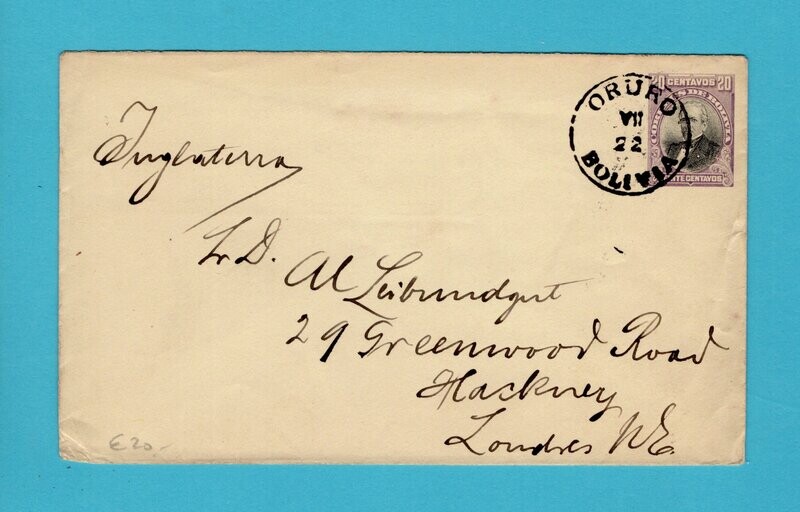 20 CENTAVOS 20
CORREOS DE BOLIVIA
ORURO
VII
22
BOLIVIA
Inglaterra
Sr. D.
Al Leibundgut
29 Greenwood Road
Hackney
Londres N.E.
£20.-